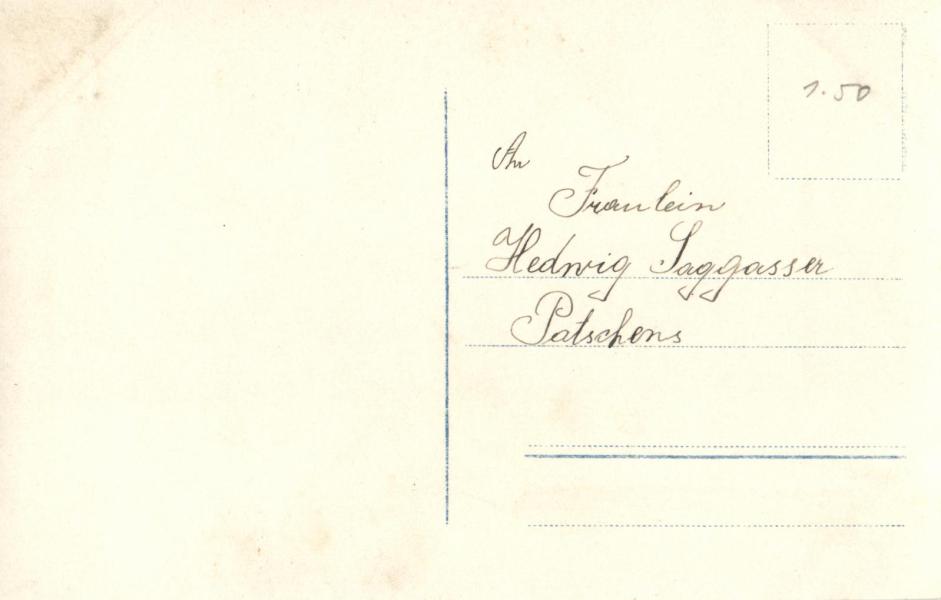 1.50
An
Fraulein
Hedwig Saggasser
Patschens